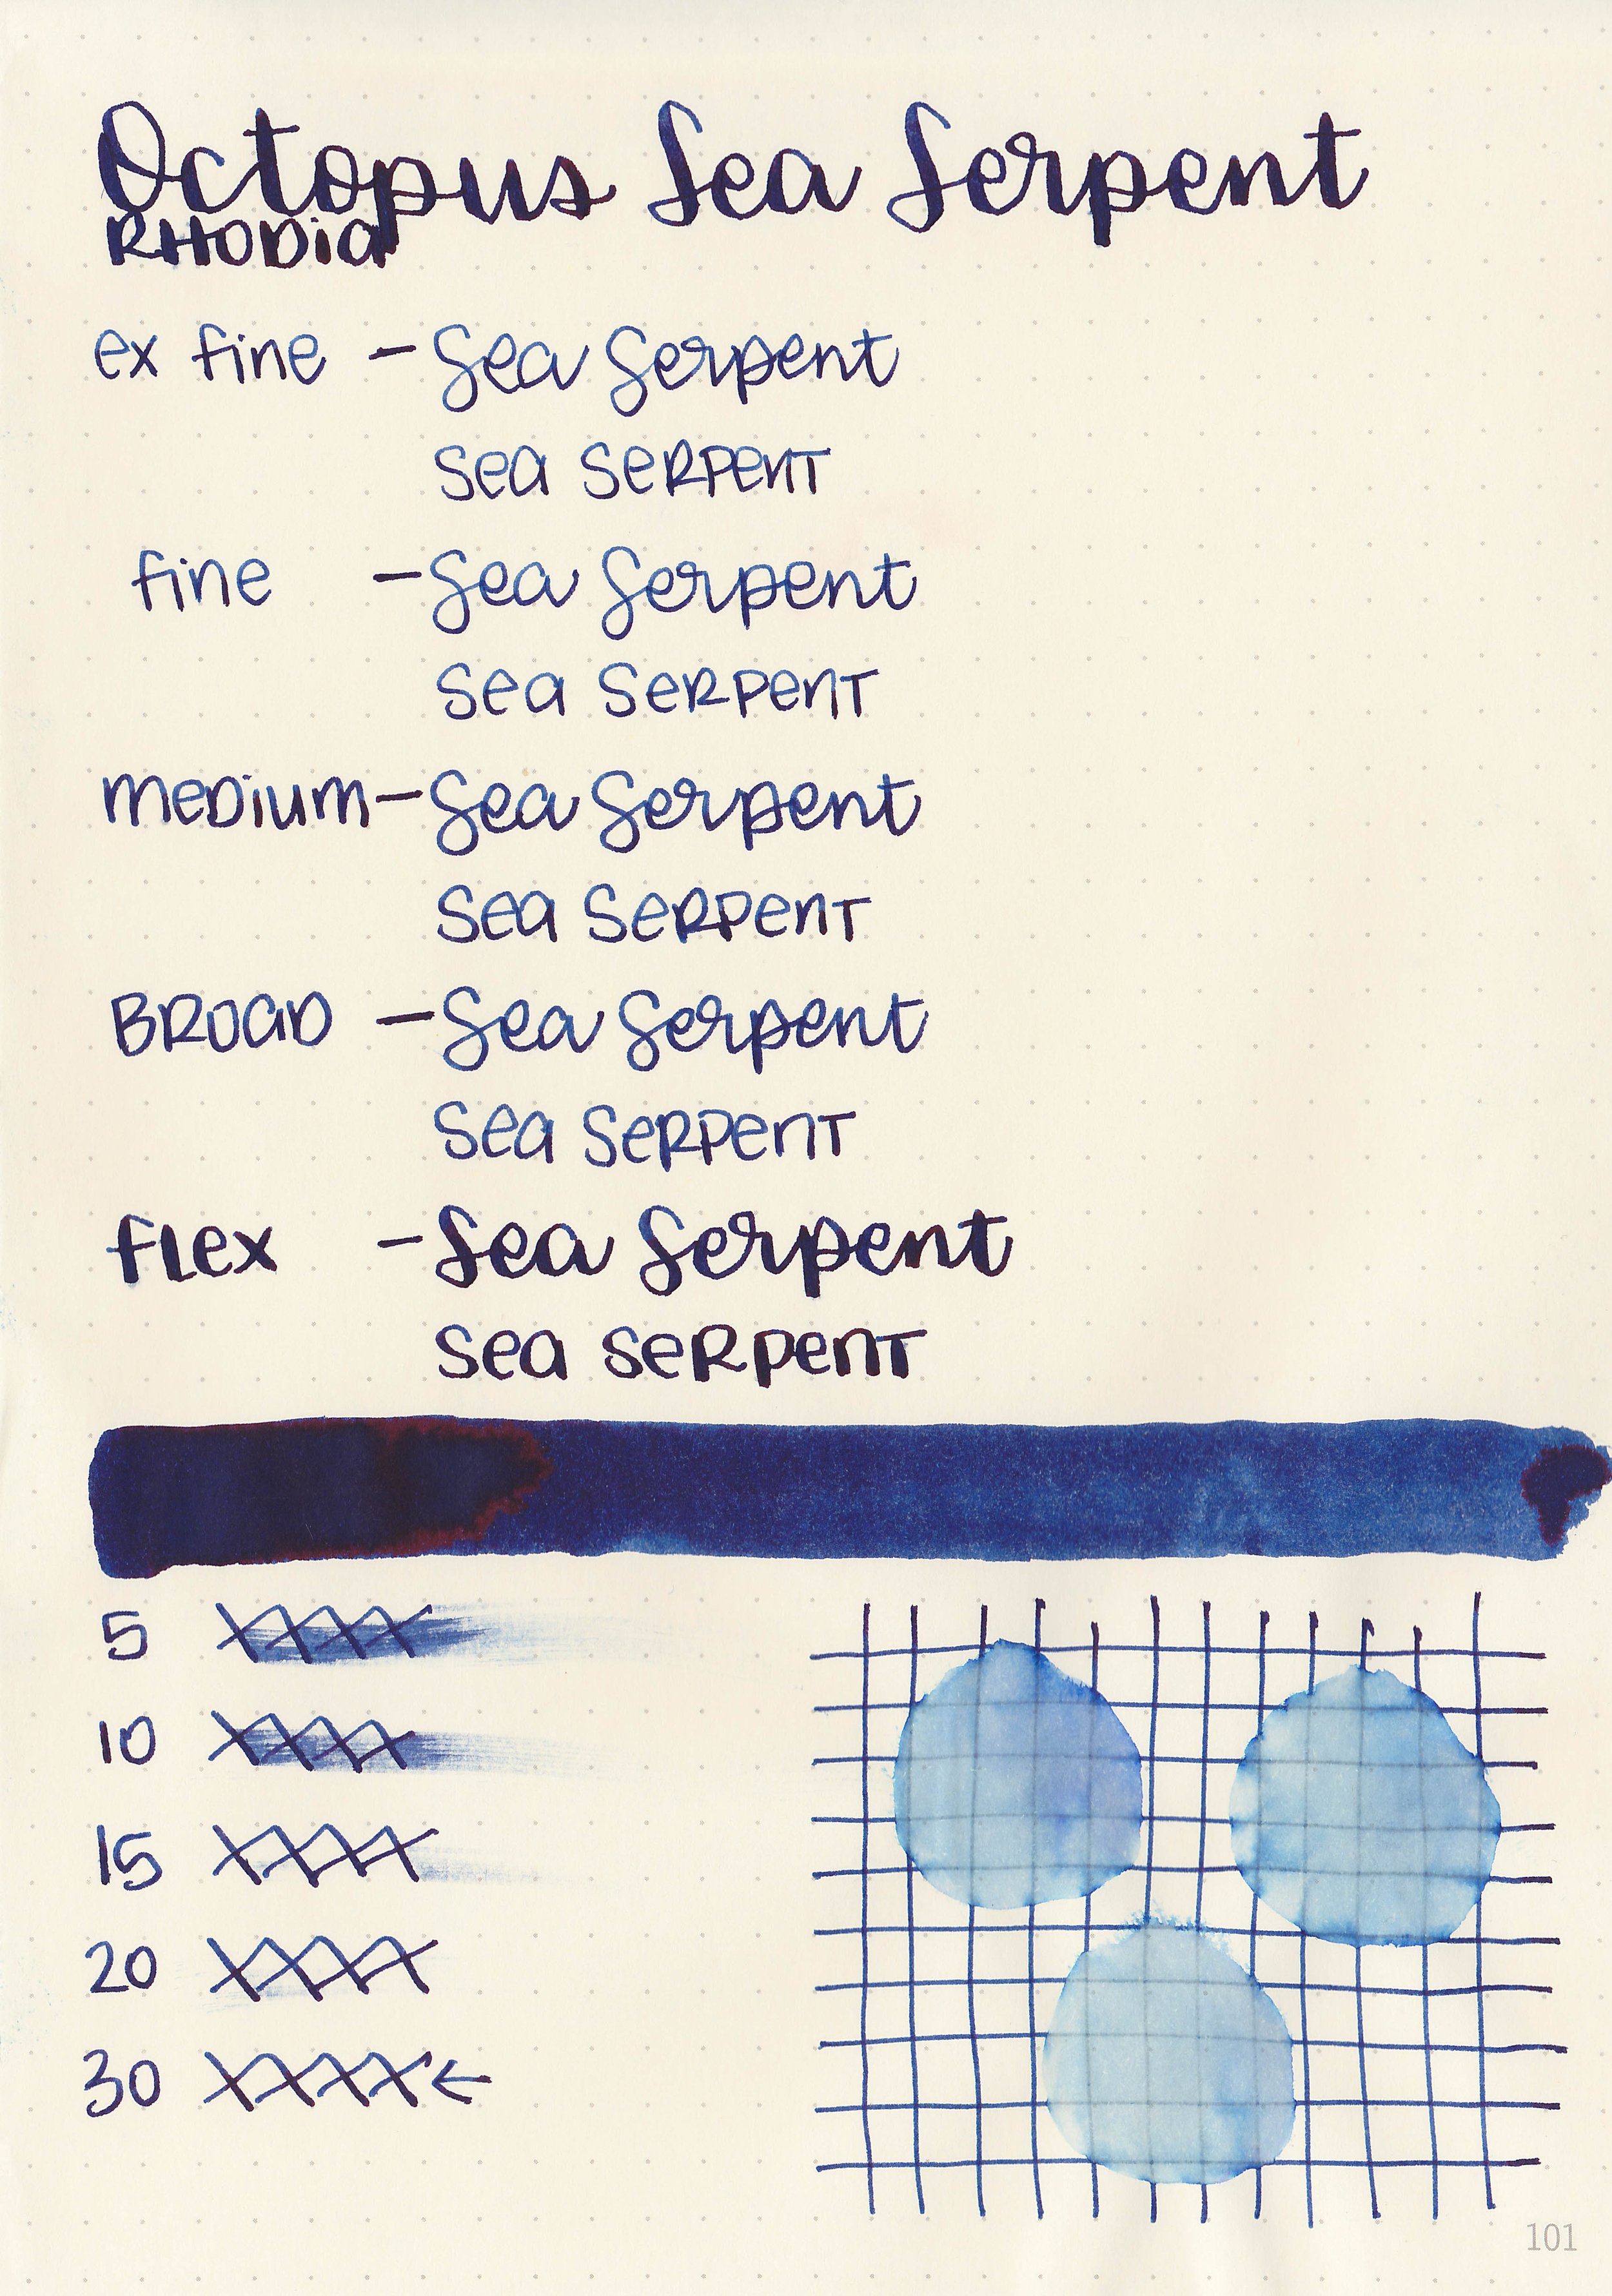 Octopus Sea Serpent
RHODia
ex fine - Sea Serpent
Sea SeRPenT
fine - Sea Serpent
Sea SeRPenT
meDium - Sea Serpent
Sea SeRPenT
BROaD - Sea Serpent
Sea SeRPenT
fLex - Sea Serpent
Sea SeRPenT
5 XXXX
10 XXXX
15 XXXX
20 XXXX
30 XXXX ←
101